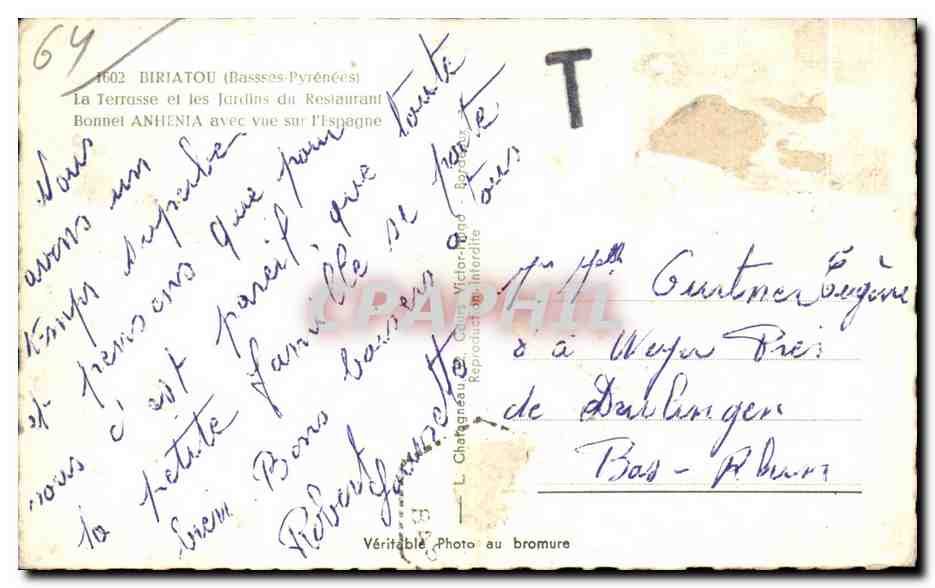 64
1602 BIRIATOU (Bassses-Pyrénées)
La Terrasse et les Jardins du Restaurant
Bonnet ANHENIA avec vue sur l'Espagne
T
Nous
avons un
temps superbe
et pensons que pour
nous c'est pareil que toute
la petite famille se porte
bien Bons baisers à tous
Robert
L. Chatagneau Cours Victor-Hugo - Bordeaux
Reproduction interdite
CPAPHIL
Mr Mell Eugène
à Weyer Près
de Drulingen
Bas-Rhin
Véritable Photo au bromure